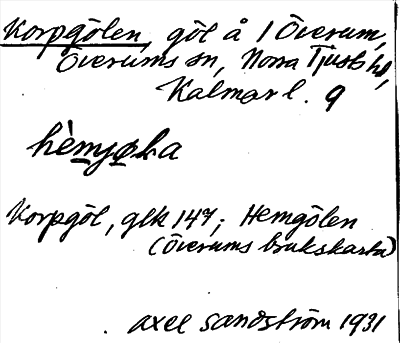 Korpgölen, göl å 1 Överum,
Överums sn, Norra Tjusts hd,
Kalmar l. 9
hèmjøla
Korpgöl, glk 147; Hemgölen
(Överums brukskarta)
Axel Sandström 1931